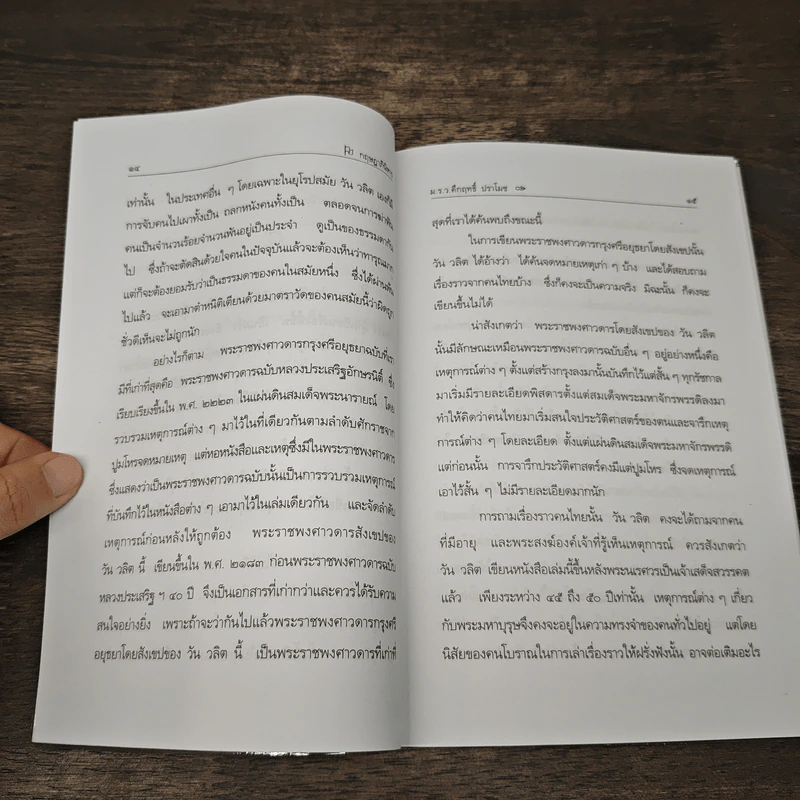 ๑๔
กฤษฎาภินิหาร
เท่านั้น ในประเทศอื่น ๆ โดยเฉพาะในยุโรปสมัย วัน วลิต เองก็มี
การจับคนไปเผาทั้งเป็น ถลกหนังคนทั้งเป็น ตลอดจนการฆ่าฟัน
คนเป็นจำนวนร้อยจำนวนพันอยู่เป็นประจำ ดูเป็นของธรรมดากัน
ไป ซึ่งถ้าจะตัดสินด้วยใจคนในปัจจุบันแล้วจะต้องเห็นว่าทารุณมาก
แต่ก็จะต้องยอมรับว่าเป็นธรรมดาของคนในสมัยหนึ่ง ซึ่งได้ผ่านพ้น
ไปแล้ว จะเอามาตำหนิติเตียนด้วยมาตราวัดของคนสมัยนี้ว่าผิดถูก
ชั่วดีเห็นจะไม่ถูกนัก
อย่างไรก็ตาม พระราชพงศาวดารกรุงศรีอยุธยาฉบับที่เรา
มีที่เก่าที่สุดคือ พระราชพงศาวดารฉบับหลวงประเสริฐอักษรนิติ์ ซึ่ง
เรียบเรียงขึ้นใน พ.ศ. ๒๒๒๓ ในแผ่นดินสมเด็จพระนารายณ์ โดย
รวบรวมเหตุการณ์ต่าง ๆ มาไว้ในที่เดียวกันตามลำดับศักราชจาก
ปูมโหรจดหมายเหตุ แต่หอหนังสือและเหตุซึ่งมีในพระราชพงศาวดาร
ซึ่งแสดงว่าเป็นพระราชพงศาวดารฉบับนั้นเป็นการรวบรวมเหตุการณ์
ที่บันทึกไว้ในหนังสือต่าง ๆ เอามาไว้ในเล่มเดียวกัน และจัดลำดับ
เหตุการณ์ก่อนหลังให้ถูกต้อง พระราชพงศาวดารสังเขปของ
วัน วลิต นี้ เขียนขึ้นใน พ.ศ. ๒๑๘๓ ก่อนพระราชพงศาวดารฉบับ
หลวงประเสริฐ ฯ ๔๐ ปี จึงเป็นเอกสารที่เก่ากว่าและควรได้รับความ
สนใจอย่างยิ่ง เพราะถ้าจะว่ากันไปแล้วพระราชพงศาวดารกรุงศรี
อยุธยาโดยสังเขปของ วัน วลิต นี้ เป็นพระราชพงศาวดารที่เก่าที่
ม.ร.ว คึกฤทธิ์ ปราโมช
๑๕
สุดที่เราได้ค้นพบถึงขณะนี้
ในการเขียนพระราชพงศาวดารกรุงศรีอยุธยาโดยสังเขปนั้น
วัน วลิต ได้อ้างว่า ได้ค้นจดหมายเหตุเก่า ๆ บ้าง และได้สอบถาม
เรื่องราวจากคนไทยบ้าง ซึ่งก็คงจะเป็นความจริง มิฉะนั้น ก็คงจะ
เขียนขึ้นไม่ได้
น่าสังเกตว่า พระราชพงศาวดารโดยสังเขปของ วัน วลิต
นั้นมีลักษณะเหมือนพระราชพงศาวดารฉบับอื่น ๆ อยู่อย่างหนึ่งคือ
เหตุการณ์ต่าง ๆ ตั้งแต่สร้างกรุงลงมานั้นบันทึกไว้แต่สั้น ๆ ทุกรัชกาล
มาเริ่มมีรายละเอียดพิสดารตั้งแต่สมเด็จพระมหาจักรพรรดิลงมา
ทำให้คิดว่าคนไทยมาเริ่มสนใจประวัติศาสตร์ของตนและจารึกเหตุ
การณ์ต่าง ๆ โดยละเอียด ตั้งแต่แผ่นดินสมเด็จพระมหาจักรพรรดิ
แต่ก่อนนั้น การจารึกประวัติศาสตร์คงมีแต่ปูมโหร ซึ่งจดเหตุการณ์
เอาไว้สั้น ๆ ไม่มีรายละเอียดมากนัก
การถามเรื่องราวคนไทยนั้น วัน วลิต คงจะได้ถามจากคน
ที่มีอายุ และพระสงฆ์องค์เจ้าที่รู้เห็นเหตุการณ์ ควรสังเกตว่า
วัน วลิต เขียนหนังสือเล่มนี้ขึ้นหลังพระนเรศวรเป็นเจ้าเสด็จสวรรคต
แล้ว เพียงระหว่าง ๔๕ ถึง ๕๐ ปีเท่านั้น เหตุการณ์ต่าง ๆ เกี่ยว
กับพระมหาบุรุษจึงคงจะอยู่ในความทรงจำของคนทั่วไปอยู่ แต่โดย
นิสัยของคนโบราณในการเล่าเรื่องราวให้ฝรั่งฟังนั้น อาจต่อเติมอะไร